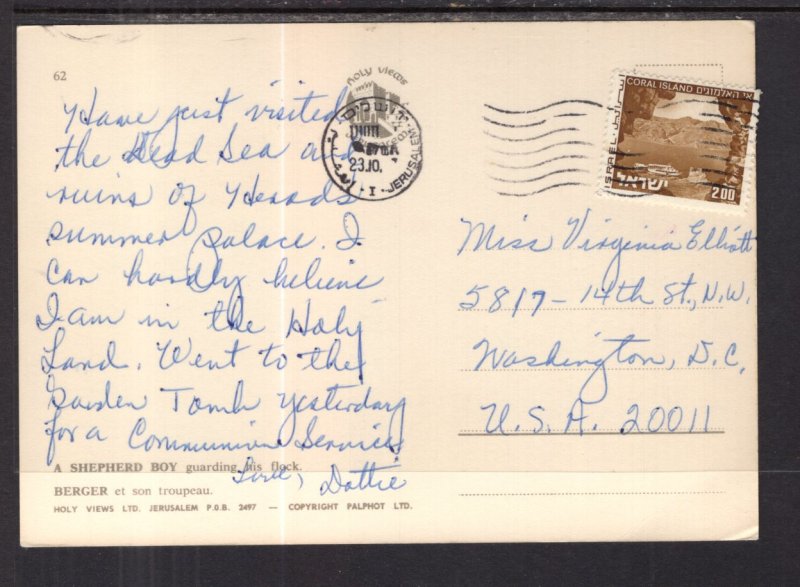 62
Have just visited
the Dead Sea and
ruins of Herods
summer palace. I
can hardly believe
I am in the Holy
Land. Went to the
Garden Tomb yesterday
for a Communion Service
Love, Dottie
A SHEPHERD BOY guarding his flock.
BERGER et son troupeau.
HOLY VIEWS LTD. JERUSALEM P.O.B. 2497 — COPYRIGHT PALPHOT LTD.
HOLY VIEWS
JERUSALEM
23.10.
CORAL ISLAND אי האלמוגים
ISRAEL
ישראל
2.00
Miss Virginia Elliott
5817-14th St., N.W.
Washington, D.C.
U.S.A. 20011